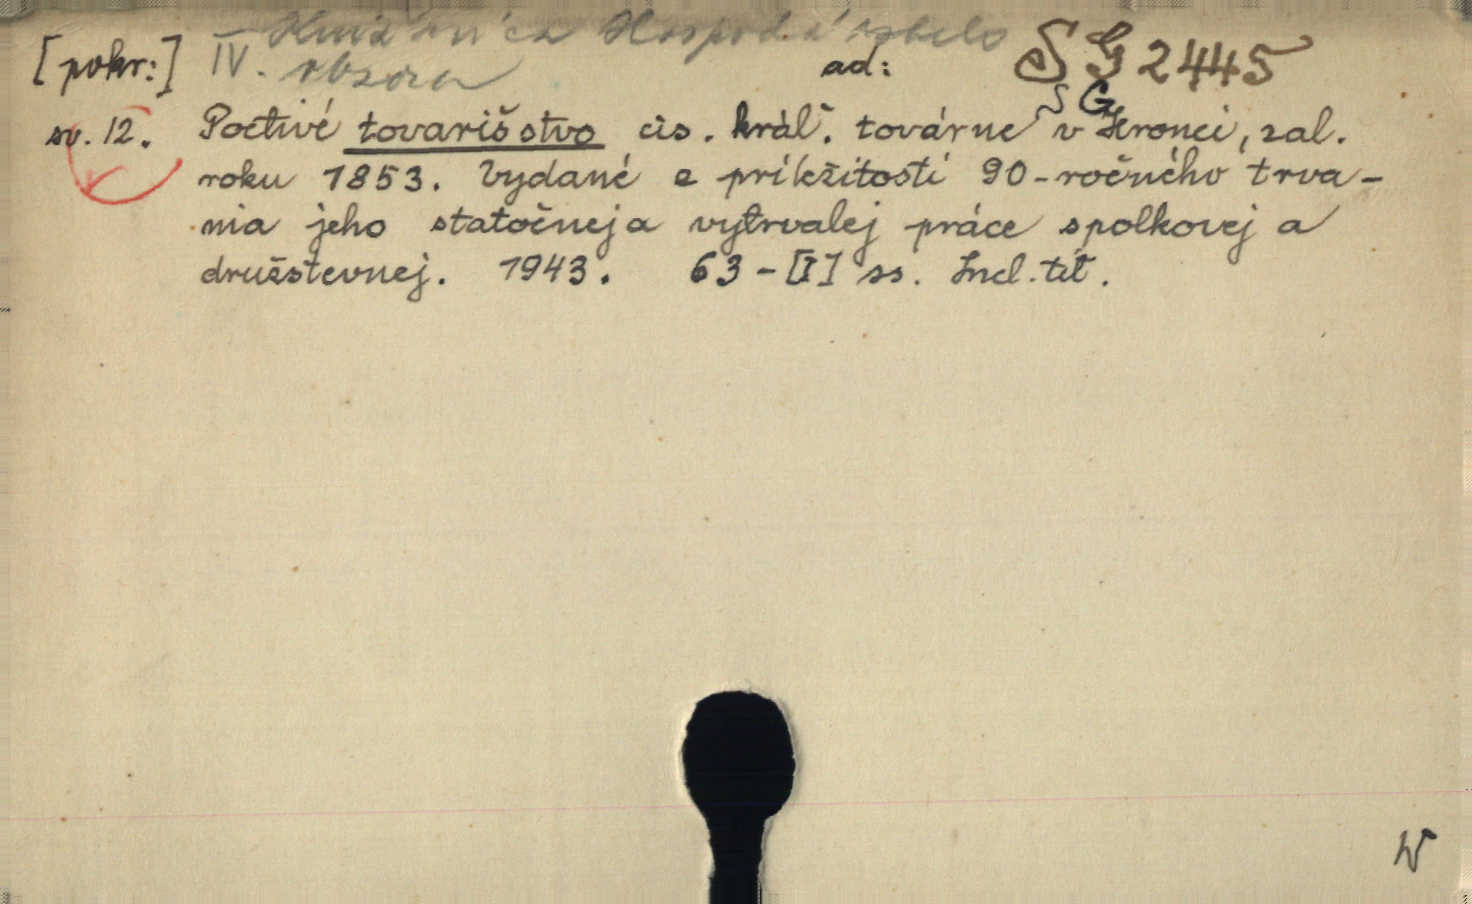 Knižnica Hospodárskeho
[pokr:] IV. obzoru ad: SG 2445
SG
sv. 12. Poctivé tovarišstvo cis. kráľ. továrne v Hronci, zal.
roku 1853. Vydané z príležitosti 90-ročného trva-
nia jeho statočnej a vytrvalej práce spolkovej a
družstevnej. 1943. 63-[I] ss. Incl. tit.
W